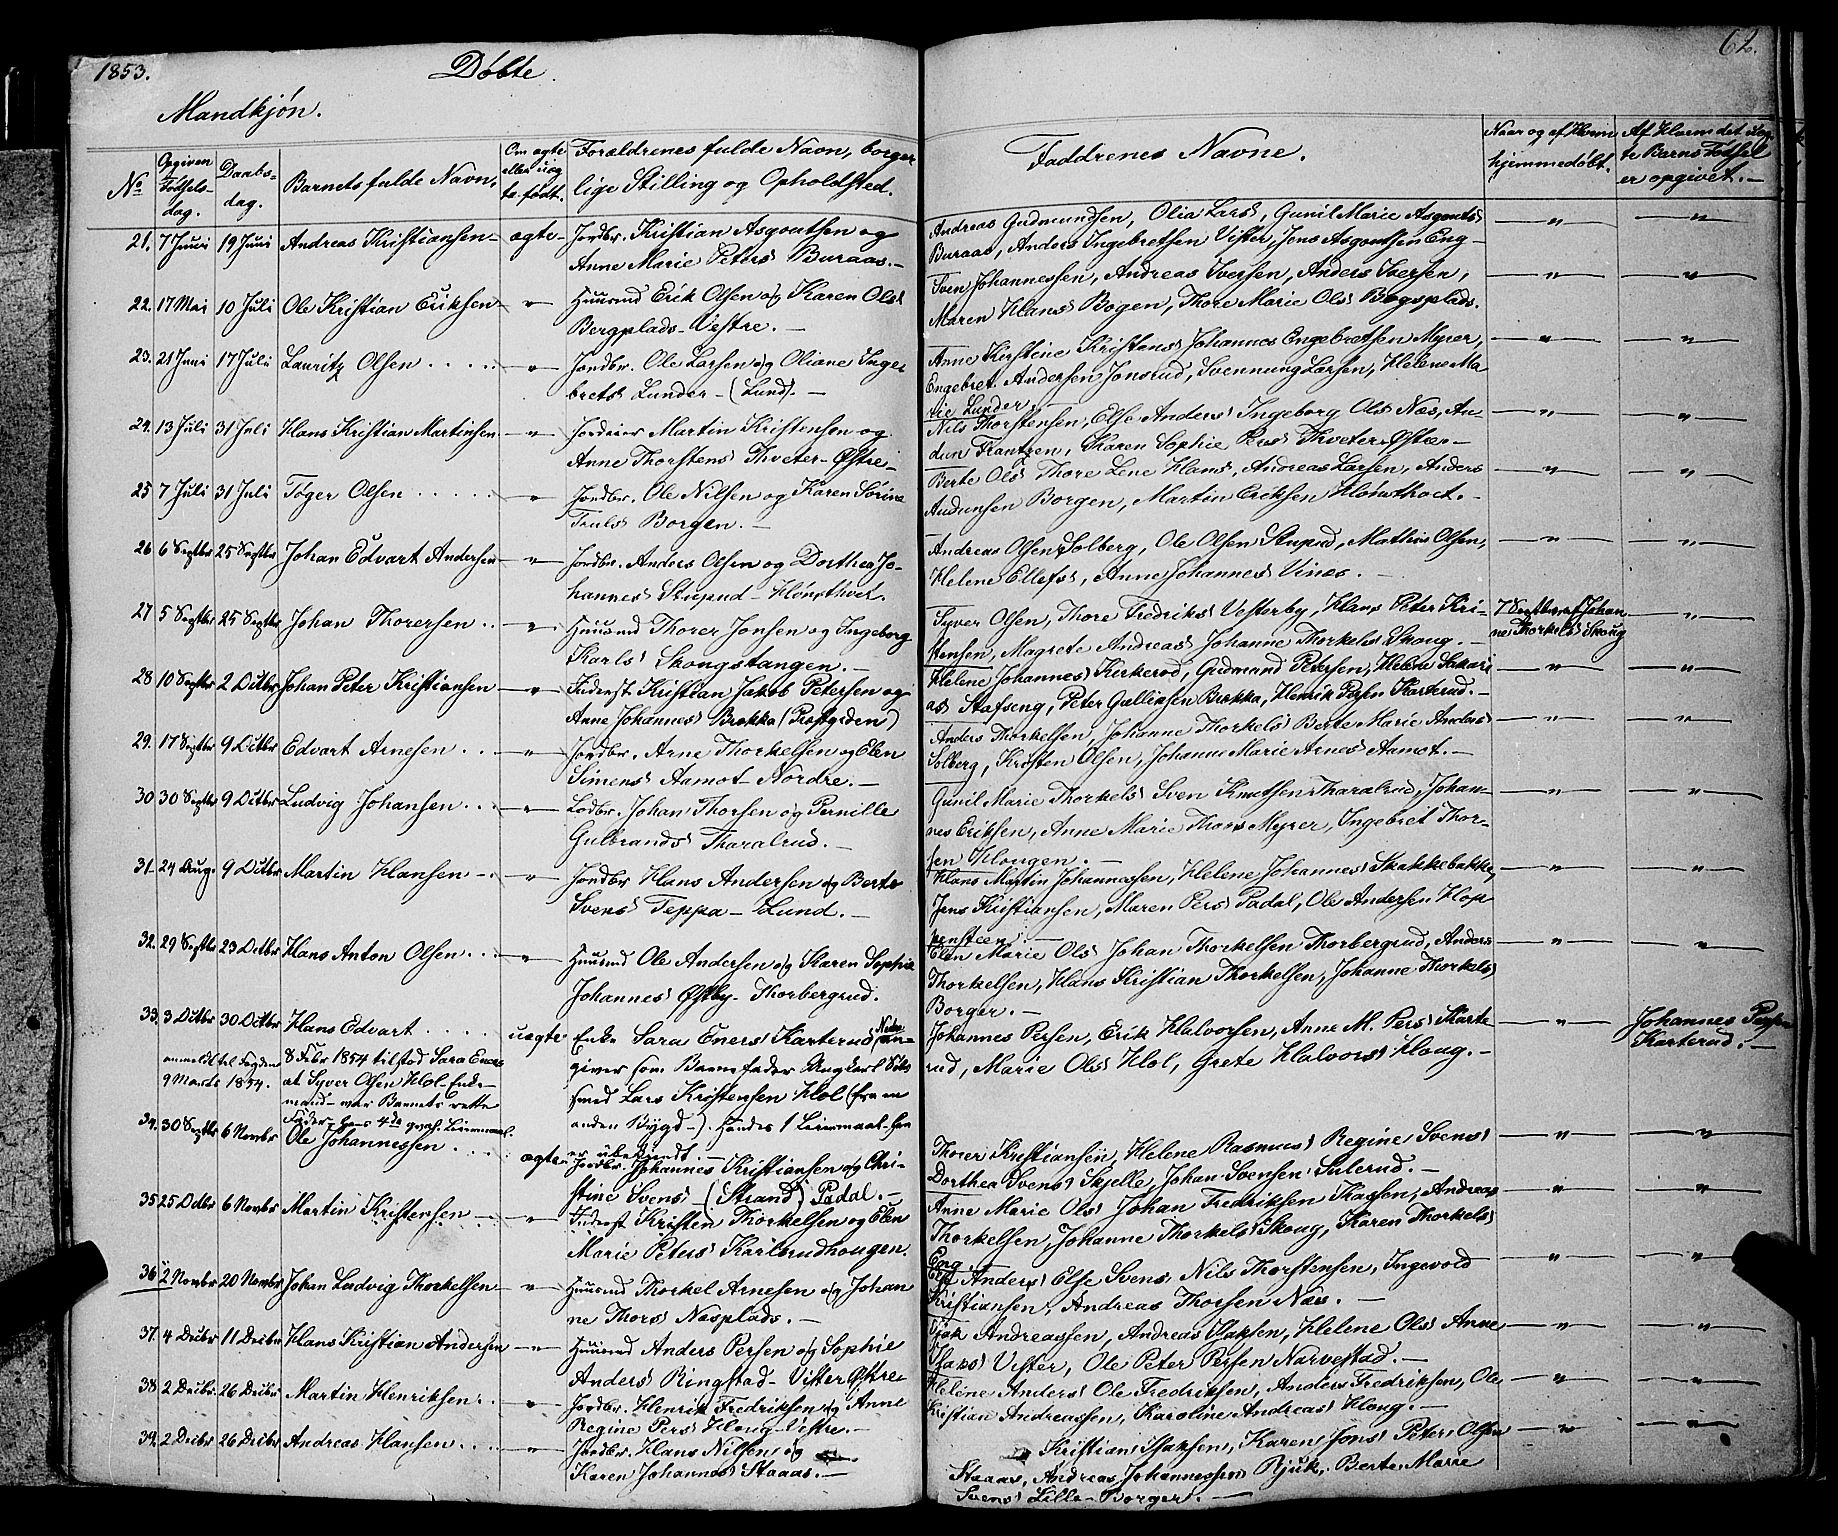 1853. Døbte. 62.
Mandkjøn.
No Opgiven Fødselsdag. Daabsdag. Barnets fulde Navn. Om ægte eller uægte født. Forældrenes fulde Navn, borgerlige Stilling og Opholdsted. Faddrenes Navne. Naar og af Hvem hjemmedøbt. Af Hvem det uægte Barns Fødsel er opgivet.
21. 7 Juni 19 Juni Andreas Kristiansen ægte Jordbr. Kristian Asgoutsen og
Anne Marie Peters Buraas.
Andreas Gudmundsen, Olia Lars, Gunil Marie Asgouts
Buraas, Anders Ingebretsen Vister, Jens Asgoutsen Eng
22. 17 Mai 10 Juli Ole Kristian Eriksen " Huusmd Erik Olsen og Karen Ols
Bergplads Vestre.
Sven Johannessen, Andreas Iversen, Anders Iversen,
Maren Hans Bogen, Thore Marie Ols Bogsplads.
23. 21 Juni 17 Juli Lauritz Olsen " Jordbr. Ole Larsen og Oliane Inge
brets Lunder (Lund).
Anne Kirstine Kristians Johannes Engebretsen Myrer,
Engebret Andersen Jonsrud, Svennung Larsen, Helene Ma
rie Lunder
24. 13 Juli 31 Juli Hans Kristian Martinsen " Jordeier Martin Kristensen og
Anne Thorstens Thveter Østre
Nils Thorstensen, Else Anders Ingeborg Ols Næs, Au
dun Frantzen, Karen Sophie Pers Thveter Østre
25 7 Juli 31 Juli Tøger Olsen " Jordbr. Ole Nilsen og Karen Sørine
Truls Borgen.
Berte Ols Thore Lene Hans, Andreas Larsen, Anders
Audunsen Borgen, Martin Eriksen Hønsthvet.
26 6 Septbr 25 Septbr Johan Edvart Andersen " Jordbr. Anders Olsen og Dorthea Jo-
hannes Stupud Hønsthvet.
Andreas Olsen Solberg, Ole Olsen Stupud, Mathias Olsen,
Helene Ellefs, Anne Johannes Vines.
27 5 Septbr 25 Septbr Johan Thorersen " Huusmd Thorer Jonsen og Ingeborg
Karls Skougstangen.
Syver Olsen, Thore Fredriks Vesterby, Hans Peter Kri-
stensen, Magrete Andreas Johanne Thorkels Skoug.
7 Septbr af Johan
ne Thorkels Skoug
28 10 Septbr 2 Octbr Johan Peter Kristiansen " Inderst Kristian Jakob Petersen og
Anne Johannes Brekka (Præstgden)
Helene Johannes Kirkerød, Gudmand Petersen, Helene Sakari
as Stafseng, Peter Gulliksen Brekka, Henrik Persen Karterud.
29. 17 Septbr 9 Octbr Edvart Arnesen " Jordbr. Arne Thorkelsen og Elen
Simens Aamot Nordre.
Anders Thorkelsen, Johanne Thorkels Berte Marie Anders
Solberg, Kristen Olsen, Johanne Marie Arnes Aamot.
30 30 Septbr 9 Octbr Ludvig Johansen " Lodbr. Johan Thorsen og Pernille
Gulbrands Tharalrud.
Gunil Marie Thorkels Sven Knutsen Tharalrud, Johan-
nes Eriksen, Anne Marie Thors Myrer, Ingebret Thor-
sen Hougen.
31 24 Aug. 9 Octbr Martin Hansen " Jordbr Hans Andersen og Berte
Svens Teppa Lund.
Hans Martin Johannessen, Helene Johannes Skakkebakke,
Jens Kristiansen, Maren Pers Padal, Ole Andersen Hop
pensteen
32. 29 Septbr 23 Octbr Hans Anton Olsen " Huusmd Ole Andersen og Karen Sophie
Johannes Østby Thorbergrud.
Elen Marie Ols Johan Thorkelsen Thorbergrud, Anders
Thorkelsen, Hans Kristian Thorkelsen, Johanne Thorkels
Borger.
33. 3 Octbr 30 Octbr Hans Edvart uægte Enke Sara Eners Karterud
giver som Barnefader Ungkarl
smed Lars Kristensen Hol (fra en
anden Bygd). Hendes 1 Leiermaal
er ubekjendt.
anmeldt til Fogden
9 Marts 1854.
8 Febr 1854 tilstod Sara Eners
at Syver Olsen Hol Enke-
mand var Barnets rette
Fader
Johannes Persen, Erik Halvorsen, Anne M. Pers Karte
rud, Marie Ols Hol, Grete Halvors Houg.
Johannes Persen
Karterud.
34. 30 Septbr 6 Novbr Ole Johannessen ægte Jordbr. Johannes Kristiansen og Chri-
stine Svens (Strand) Padal.
Thorer Kristiansen, Helene Rasmus Regine Svens
Dorthea Svens Skjelle, Johan Svensen Sulerud.
35 25 Octbr 6 Novbr Martin Kristensen " Inderst Kristen Thorkelsen og Elen
Marie Peters Karlsrudhougen.
Anne Marie Ols Johan Fredriksen Kaasen, Andreas
Thorkelsen, Johanne Thorkels Skoug, Karen Thorkels
Eng
36 2 Novbr 20 Novbr Johan Ludvig Thorkelsen " Huusmd Thorkel Arnesen og Johan
ne Thors Næsplads.
Anders Else Svens Nils Thorstensen, Ingevold
Kristiansen, Andreas Thorsen Næs.
37. 4 Decbr 11 Decbr Hans Kristian Andersen " Huusmd Anders Persen og Sophie
Anders Ringstad Vister Østre
Andreassen, Andreas Isaksen, Helene Ols Anne
Isaks Vister, Ole Peter Persen Narvestad.
38 2 Decbr 26 Decbr Martin Henriksen " Jordbr. Henrik Fredriksen og Anne
Regine Pers Houg Vestre.
Helene Anders Ole Fredriksen, Anders Fredriksen, Ole
Kristian Andreassen, Karoline Andreas Houg.
39. 2 Decbr 26 Decbr Andreas Hansen " Jordbr. Hans Nilsen og
Karen Johannes Staaas.
Kristian Isaksen, Karen Jons Peter Olsen
Staaas, Andreas Johannessen Rjuk, Berte Marie
Svens Lille Borger.